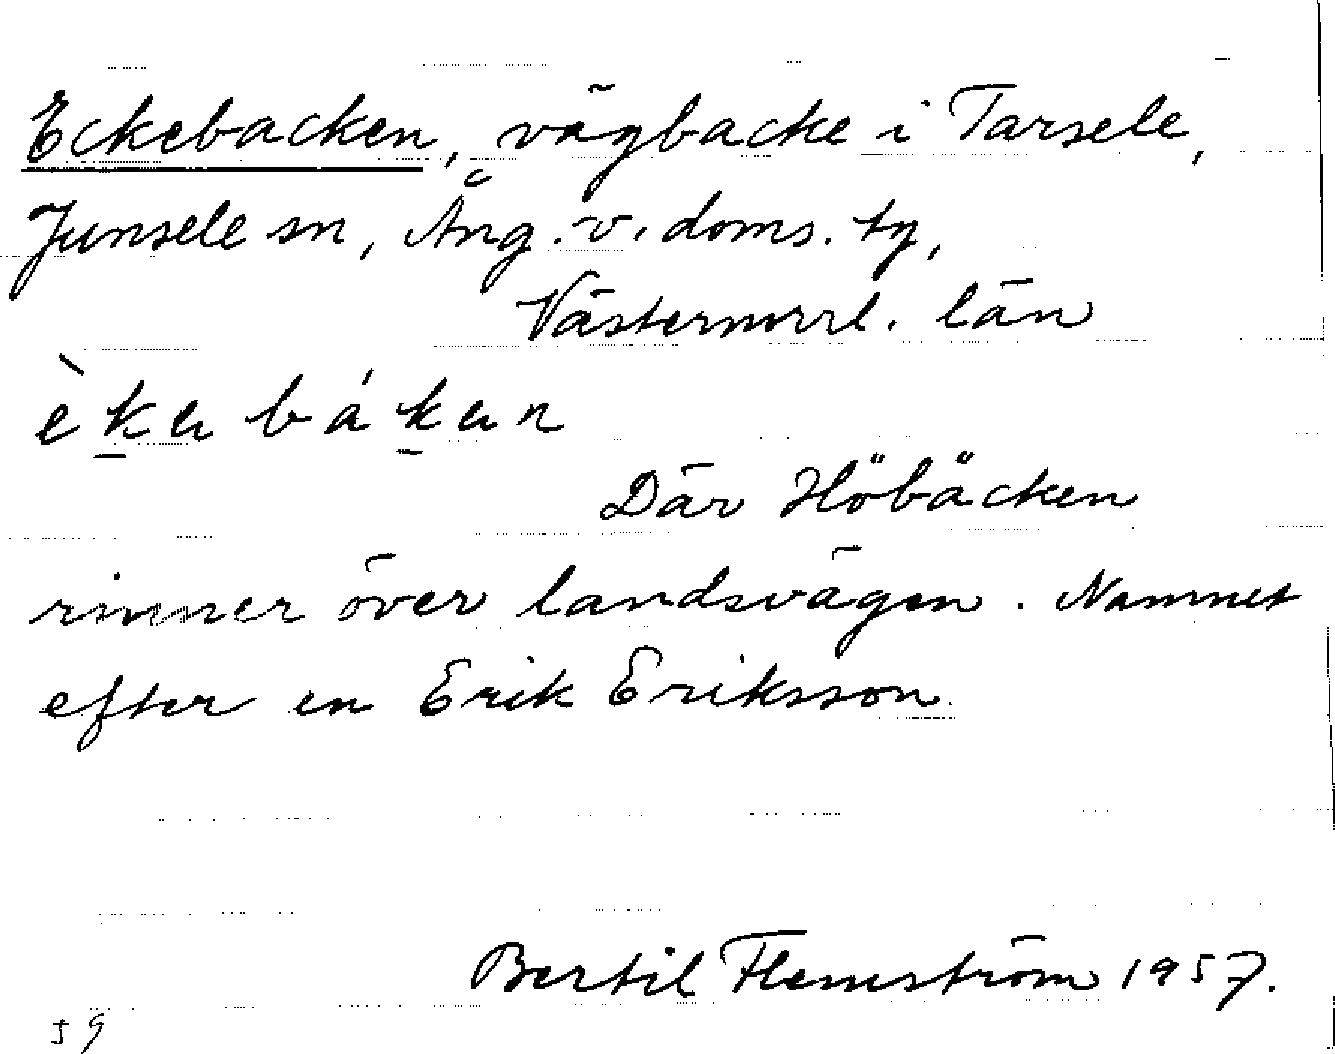 Eckebacken, vägbacke i Tarsele,
Junsele sn, Ång. v. doms. tg,
Västernorrl. län
èka bákan
Där Höbäcken
rinner över landsvägen. Namnet
efter en Erik Eriksson.
Bertil Flemström 1957.
59